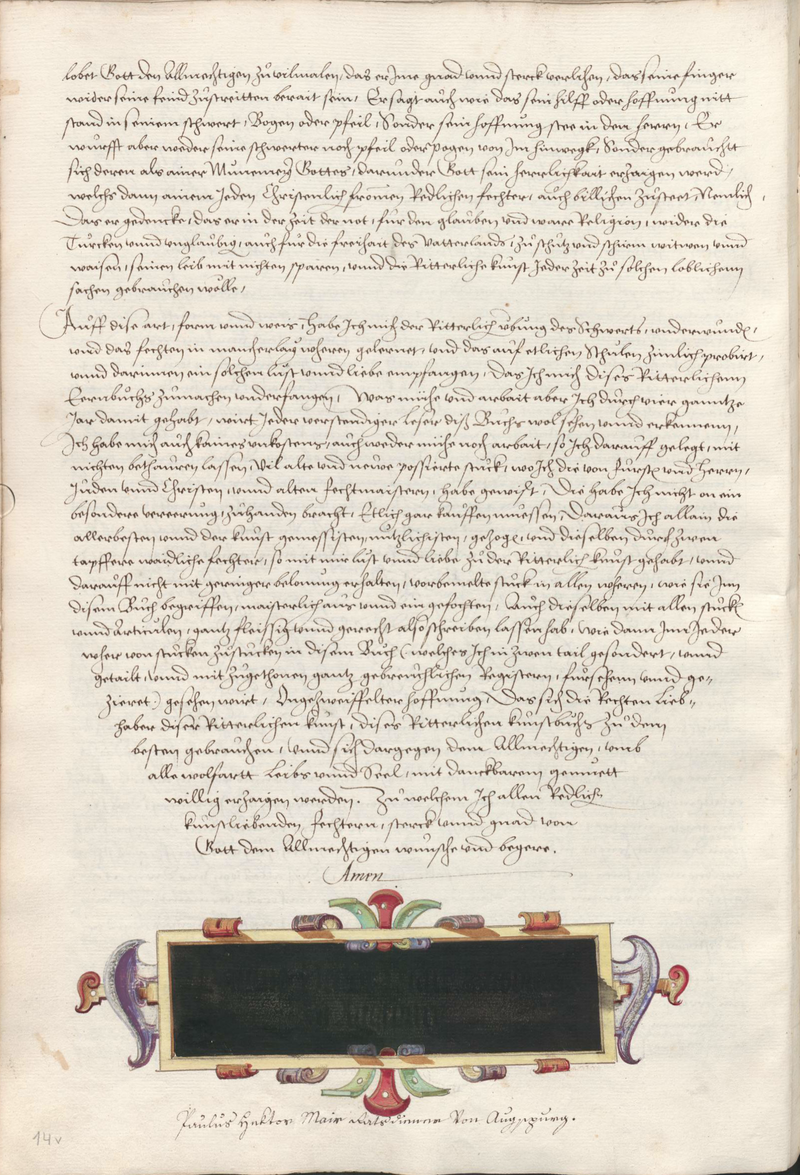 lobet Gott den Allmechtigen zu vilmalen, das er Jme gnad vnnd sterck verlihen, das seine finger
wider seine feind zustreitten berait sein, Er sagt auch wie das sein hilff oder hoffnung nitt
stand in seinem schwert, Bogen oder pfeil, Sonder sein hoffnung stee in den herrn, Er
wurfft aber weder seine schwerter noch pfeil oder pogen von Im hinwegk, Sonder gebraucht
sich deren als ainer Munement Gottes, darunder Gott sein herrlichkait erzaigen werd,
welchs dann ainem Jeden Christenlich fromen Redlichen fechter, auch billichen zusteet, Nemlich,
Das er gedencke, das er in der zeit der not, für den glauben vnd ware Religion, wider die
Turcken vnnd vnglaubig, auch für die freihait des Vatterlands, zu schutz vnd schirm witwen vnnd
waisen, seinen leib mit nichten sparen, vnnd die Ritterliche kunst Jeder zeit zu solchen loblichenn
sachen gebrauchen wölle,
Auff dise art, form vnnd weis, habe Ich mich der Ritterlich vbung des Schwerts, vnderwunden,
vnd das fechten in mancherlay wheren gelernet, vnd das auf etlichen Schulen zimlich probirt,
vnnd darinnen ein solchen lust vnnd liebe empfangen, Das Ich mich dises Ritterlichenn
Eernbuchs zumachen vnderfangen, Was mühe vnd arbait aber Ich durch vier ganntze
Jar damit gehabt, wirt Jeder verstendiger leser diß Buchs wol sehen vnnd erkennenn,
Ich habe mich auch kaines vnkostens, auch weder mühe noch arbait, so Ich darauff gelegt, mit
nichten bethauren lassen, Vil alte vnd newe possierte stuck, wo Ich die von fursten vnd Herrn,
Juden vnnd Christen, vnnd alten fechtmaistern, habe gewist, Die habe Ich nicht on ein
besondere vereerung, zuhanden bracht, Etlich gar kauffen muessen, Daraus Ich allain die
allerbesten vnnd der kunst gemessisten, nutzlichisten, gezogen, vnd dieselben durch zwen
tapffere waidliche fechter, so mit mir lust vnnd liebe zu der Ritterlich kunst gehabt, vnnd
darauff nicht mit geringer belonung erhalten, vorbemelte stuck in allen wheren, wie sie Jnn
disem Buch begriffen, maisterlich aus vnnd ein gefochten, Auch dieselben mit allen stucken
vnnd Articulen, gantz fleissig vnnd gerecht also schreiben lassen hab, wie dann Jnn Jeder
wher von stucken zustucken in disem Buch (welches Ich in zwen tail gesondert, vnnd
getailt, vnnd mit zugethonen gantz gebreuchlichen Registern, fursehenn vnnd ge-
zieret) gesehen wirt, Ongezweiffelter hoffnung, Das sich die Rechten Lieb-
haber diser Ritterlichen kunst, dises Ritterlichen kunstbuchs zu dem
besten gebrauchen, vnnd sich dargegen dem Allmechtigen, vmb
alle wolfartt Leibs vnnd Seel, mit danckbarem gemuett
willig erzaigen werden. Zu welchem Ich allen Redlichen
kunstliebenden fechtern, sterck vnnd gnad von
Gott dem Allmechtigen wunsche vnd begere.
Amen
Paulus Hektor Mair Ratsdiener Von Augspurg.
14v